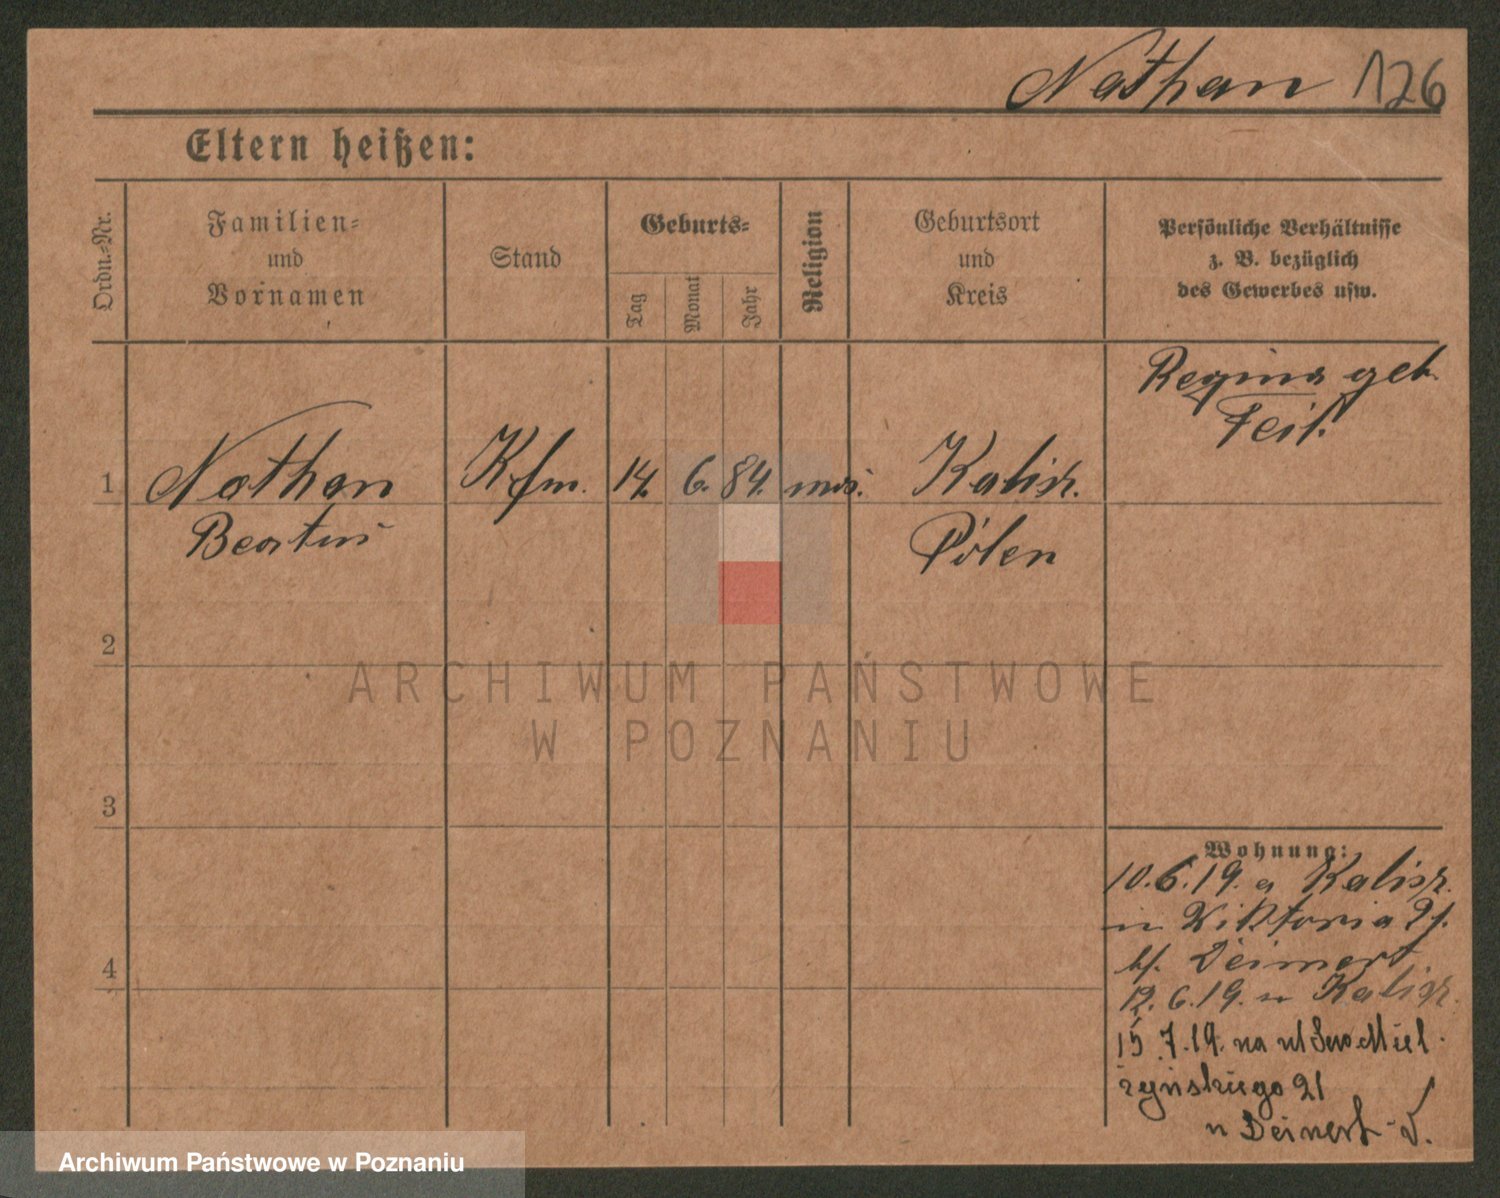 Nathan 126
Eltern heißen:
Ordn.-Nr.
Familien-
und
Vornamen
Stand
Geburts-
Tag
Monat
Jahr
Religion
Geburtsort
und
Kreis
Persönliche Verhältnisse
z. B. bezüglich
des Gewerbes usw.
Regina geb.
1 Nathan Kfm. 14. 6. 84. mos. Kalisz.
Beatus Polen
2
3
4
Wohnung:
10.6.19. a Kalisz.
Wiktoria
Deinert
12.6.19. n Kalisz.
15.7.19. na ul Sew. Miel
żyńskiego 21
u Deinert
ARCHIWUM PAŃSTWOWE
W POZNANIU
Archiwum Państwowe w Poznaniu